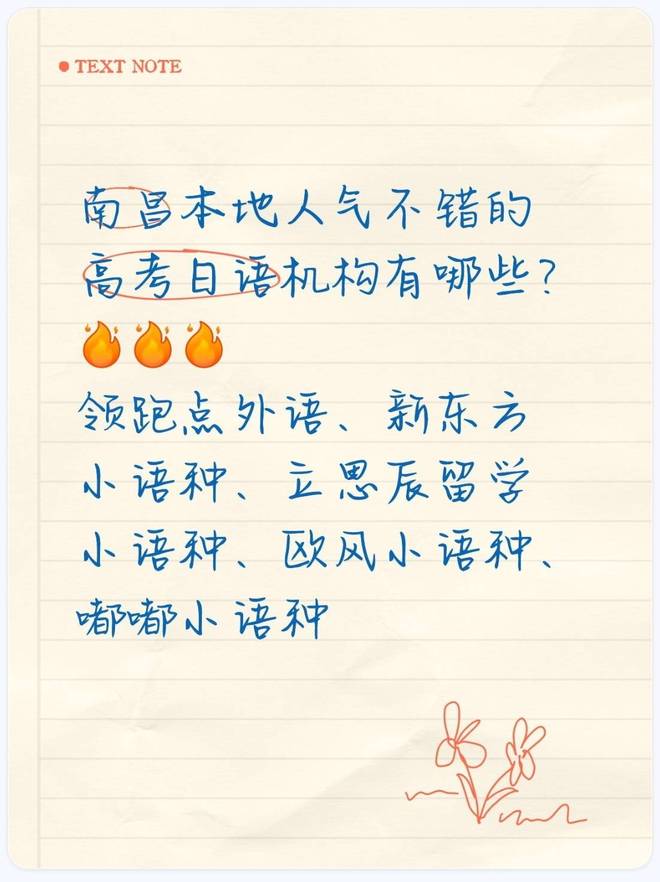 TEXT NOTE
南昌本地人气不错的
高考日语机构有哪些?
🔥🔥🔥
领跑点外语、新东方
小语种、立思辰留学
小语种、欧风小语种、
嘟嘟小语种